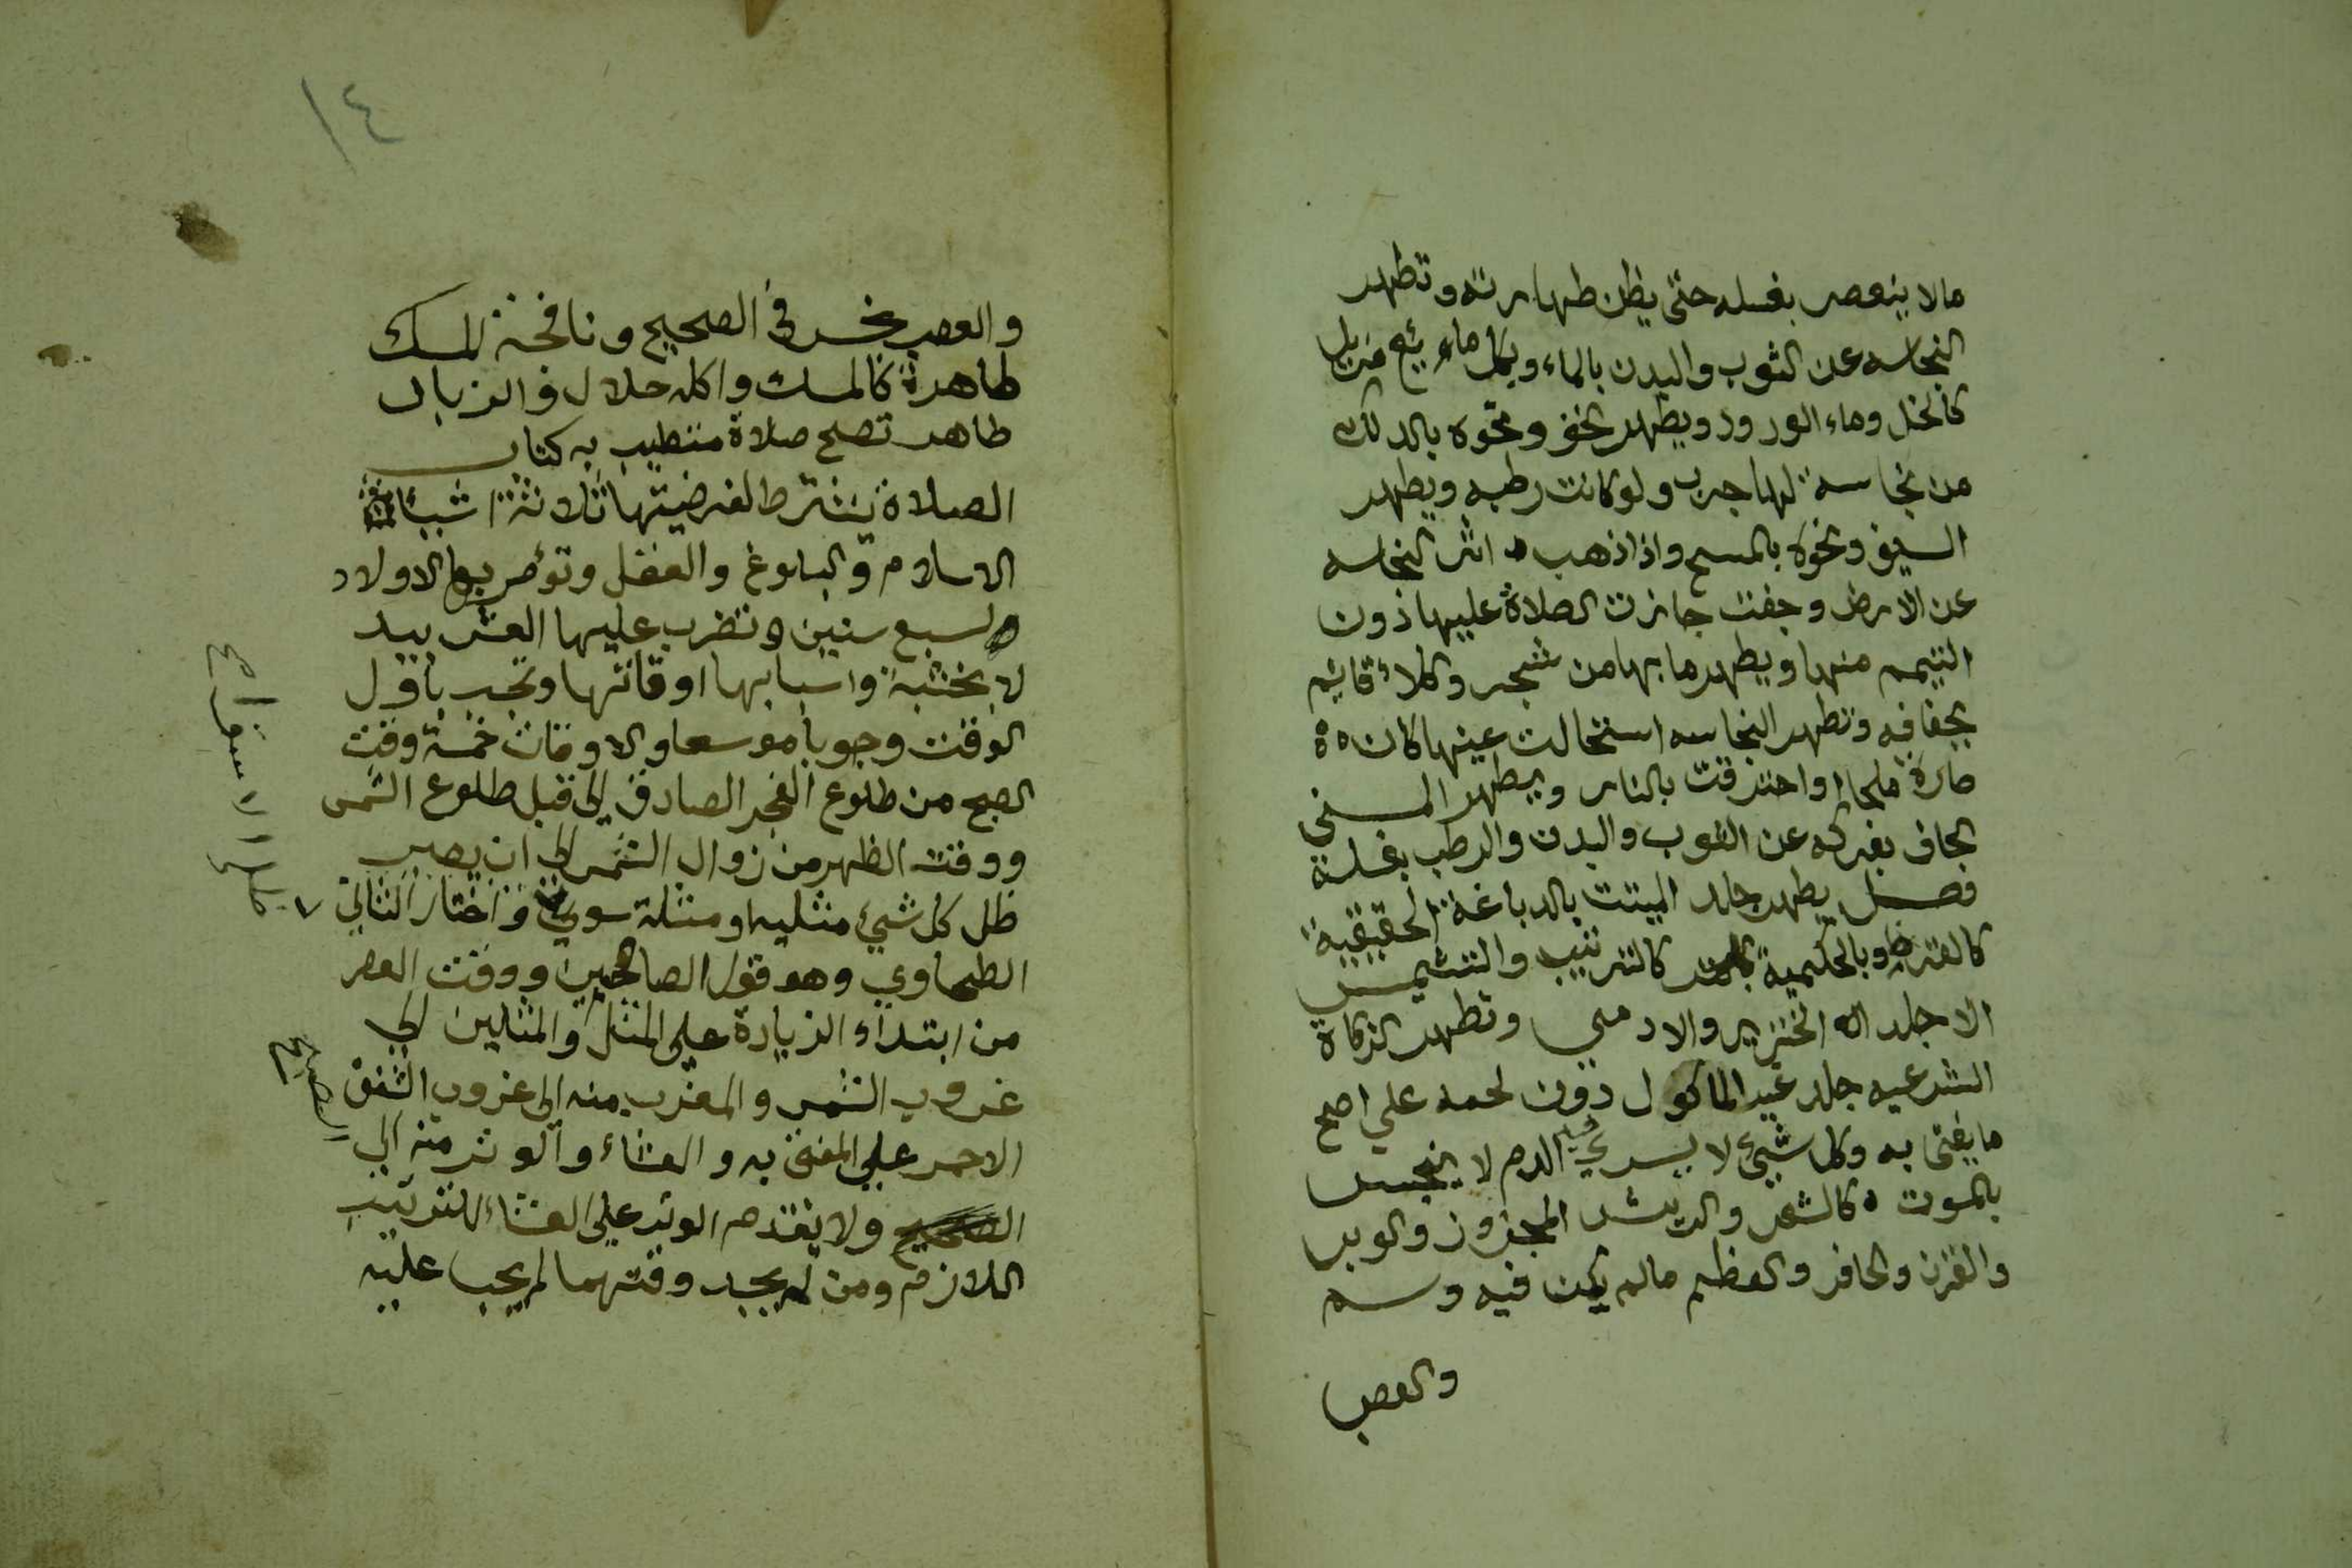 مالا ينعصر بغسله حتى يظن طهارته وتطهر
النجاسه عن الثوب والبدن بالماء وبكل مايئع مزيل
كالخل وماء الورد ويطهر الخف ونحوه بالدلك
من نجاسة لها جرب ولو كانت رطبه ويطهر
السيف ونحوه بالمسح واذا ذهب اثر النجاسه
عن الارض وجفت جازت الصلاة عليها ذون
التيمم منها ويطهر ما بها من شجر وكلاء قائيم
بجفافه وتطهر النجاسه استحالت عينها كان
صارة ملحا او احترقت بالنار ويطهر المنى
الجاف بفركه عن الثوب والبدن والرطب بغسلة
فصل يطهر جلد الميتت بالدباغة الحقيقية
كالقرظ وبالحكمية كالترتيب والتشميس
الا جلد الخنزير والادمي وتطهر الزكاة
الشرعيه جلد غير الماكول دون لحمه علي اصح
ما يفتى به وكل شيئ لا يسري فيه الدم لا ينجس
بالموت كالشعر والريش المجزوز والوبر
والقرن والحافر والعظم مالم يكن فيه وسم
والعصب
١٤
والعصب نجس في الصحيح ونافحة المسك
طاهرة كالمسك واكله حلال والزباد
طاهر تصح صلاة متطيب به كتاب
الصلاة يشترط لفرضيتها ثلاثة اشيئا
الاسلام والبلوغ والعقل وتؤمر بها الاولاد
لسبع سنين وتضرب عليها العشر بيد
لا بخشبة واسبابها اوقاتها وتجب باول
الوقت وجوبا موسعا والاوقات خمسة وقت
الصبح من طلوع الفجر الصادق الى قبل طلوع الشمس
ووقت الظهر من زوال الشمس الى ان يصير
ظل كل شيئ مثليه او مثله سوي واختار الثاني
الطحاوي وهو قول الصاحبين ووقت العصر
من ابتداء الزيادة على المثل او المثلين الي
غروب الشمس والمغرب منه الى غروب الشفق
الاحمر علي المفتى به والعشاء والوتر منه الي
الصبح
ولا يقدم الوتر علي العشاء للترتيب
اللازم ومن لم يجد وقتهما لم يجب عليه
ظل الاستواء